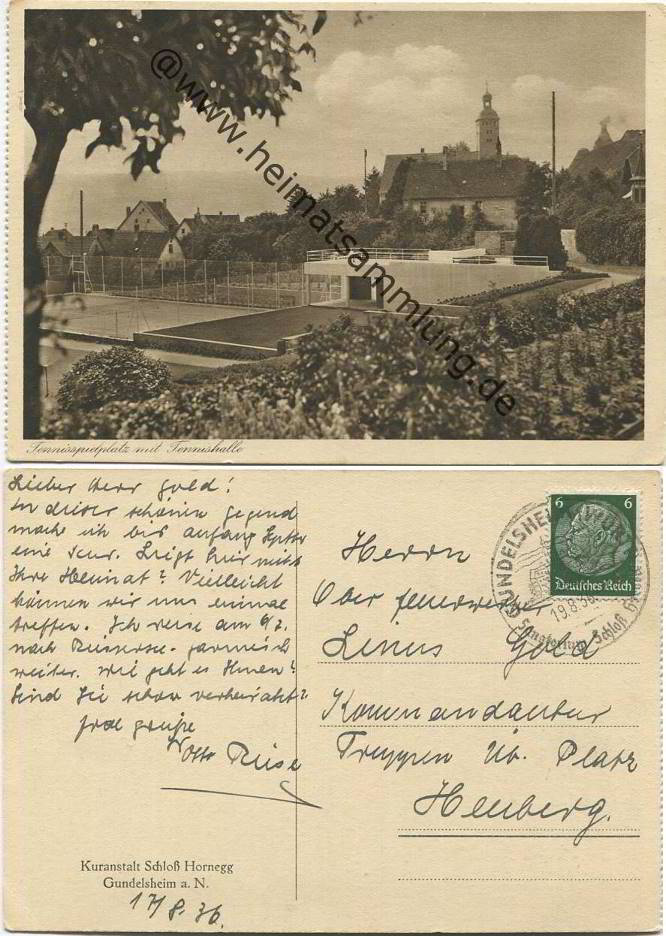 @www.heimatsammlung.de
Tennisspielplatz mit Tennishalle
Lieber Herr Gold!
In dieser schönen Gegend
mache ich bis anfang Septbr
eine Kur. Liegt hier nicht
Ihre Heimat? Vielleicht
können wir uns einmal
treffen. Ich reise am 9/.
nach Riessersee-Garmisch
weiter. Wie geht es Ihnen?
Sind Sie schon verheiratet?
Grüße
Otto Riese
Kuranstalt Schloß Hornegg
Gundelsheim a. N.
17/8. 36.
6 6
Deutsches Reich
GUNDELSHEIM (WÜRTT)
19.8.36
Sanatorium Schloß
Herrn
Oberfeuerwerker
Linus Gold
Kommandantur
Truppen Üb. Platz
Heuberg.